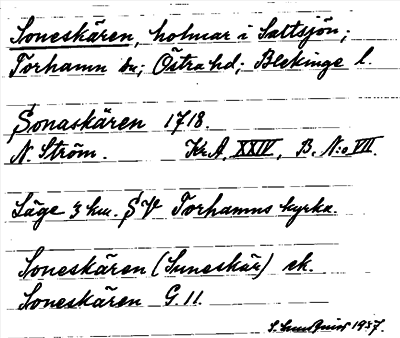 Soneskären, holmar i Saltsjön;
Torhamn sn; Östra hd; Blekinge l.
Sonaskären 1718.
N. Ström. Kr.A. XXIV, B. N:o VII.
Läge 3 km. S Torhamns kyrka.
Soneskären (Suneskär) ek.
Soneskären G. 11.
1937.